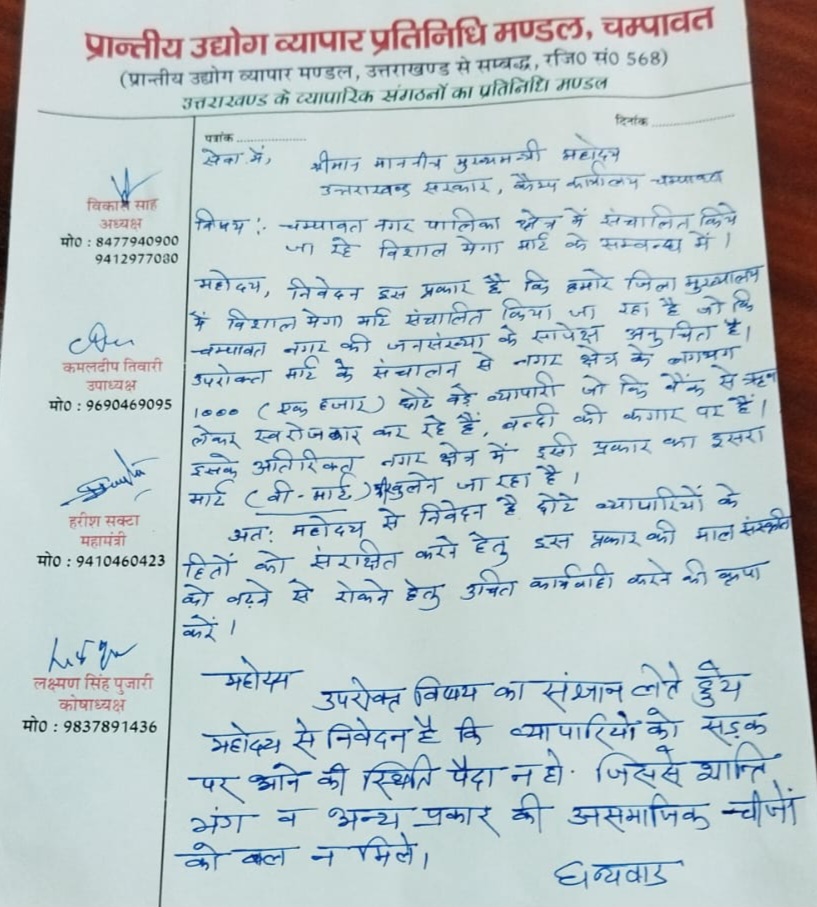 प्रान्तीय उद्योग व्यापार प्रतिनिधि मण्डल, चम्पावत
(प्रान्तीय उद्योग व्यापार मण्डल, उत्तराखण्ड से सम्बद्ध, रजि0 सं0 568)
उत्तराखण्ड के व्यापारिक संगठनों का प्रतिनिधि मण्डल
पत्रांक ..................
दिनांक ..................
विकास साह
अध्यक्ष
मो0 : 8477940900
9412977080
कमलदीप तिवारी
उपाध्यक्ष
मो0 : 9690469095
हरीश सक्टा
महामंत्री
मो0 : 9410460423
लक्ष्मण सिंह पुजारी
कोषाध्यक्ष
मो0 : 9837891436
सेवा में, श्रीमान माननीय मुख्यमंत्री महोदय
उत्तराखण्ड सरकार, कैम्प कार्यालय चम्पावत
विषय :- चम्पावत नगर पालिका क्षेत्र में संचालित किये
जा रहे विशाल मेगा मार्ट के सम्बन्ध में।
महोदय, निवेदन इस प्रकार है कि हमारे जिला मुख्यालय
में विशाल मेगा मार्ट संचालित किया जा रहा है जो कि
चम्पावत नगर की जनसंख्या के सापेक्ष अनुचित है।
उपरोक्त मार्ट के संचालन से नगर क्षेत्र के लगभग
1000 (एक हजार) छोटे बड़े व्यापारी जो कि बैंक से ऋण
लेकर स्वरोजगार कर रहे हैं, बन्दी की कगार पर हैं।
इसके अतिरिक्त नगर क्षेत्र में इसी प्रकार का दूसरा
मार्ट (वी-मार्ट) खुलने जा रहा है।
अतः महोदय से निवेदन है छोटे व्यापारियों के
हितों को संरक्षित करने हेतु इस प्रकार की माल संस्कृति
को बढ़ने से रोकने हेतु उचित कार्यवाही करने की कृपा
करें।
महोदय
उपरोक्त विषय का संज्ञान लेते हुये
महोदय से निवेदन है कि व्यापारियों को सड़क
पर आने की स्थिति पैदा न हो. जिससे शान्ति
भंग व अन्य प्रकार की असमाजिक चीजों
को बल न मिले।
धन्यवाद